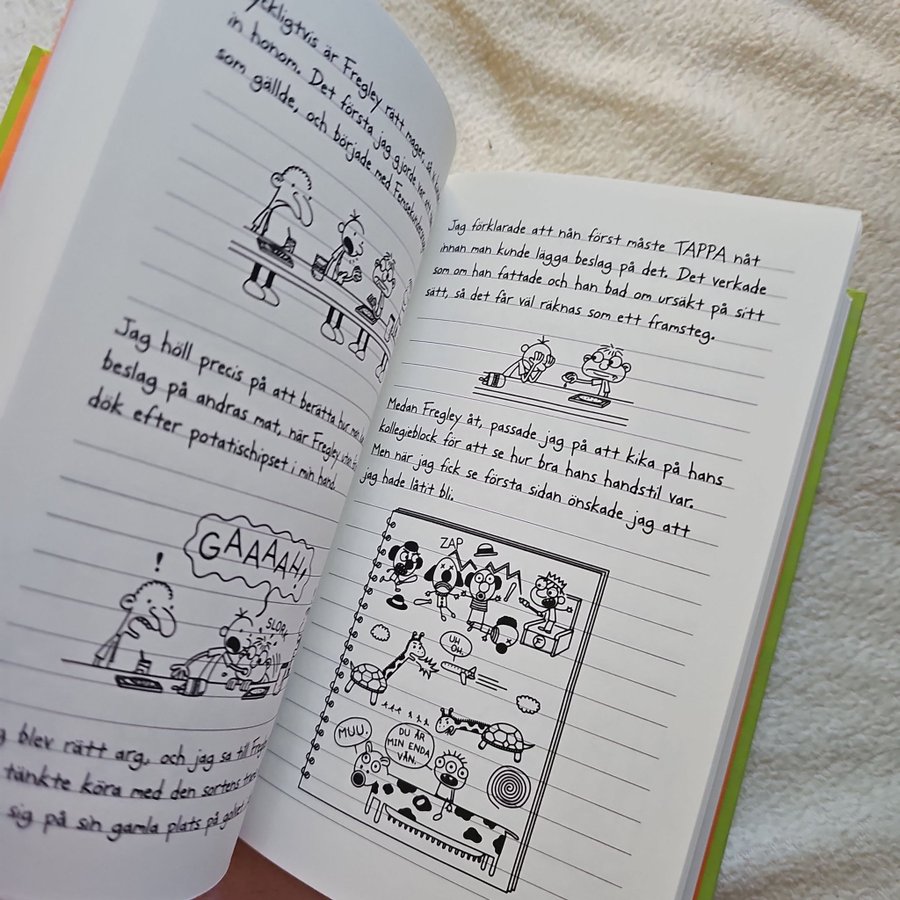 är Fregley rätt mager, så
in honom. Det första jag gjorde var att
som gällde, och började med Femsekundersregeln
Jag höll precis på att berätta hur man
beslag på andras mat, när Fregley utan
dök efter potatischipset i min hand.
!
GAAAAH!
SLORP
blev rätt arg, och jag sa till Fregley
tänkte köra med den sortens
sig på sin gamla plats på golvet
Jag förklarade att nån först måste TAPPA nåt
innan man kunde lägga beslag på det. Det verkade
som om han fattade och han bad om ursäkt på sitt
sätt, så det får väl räknas som ett framsteg.
Medan Fregley åt, passade jag på att kika på hans
kollegieblock för att se hur bra hans handstil var.
Men när jag fick se första sidan önskade jag att
jag hade låtit bli.
ZAP
UH
OH.
MUU.
DU ÄR
MIN ENDA
VÄN.